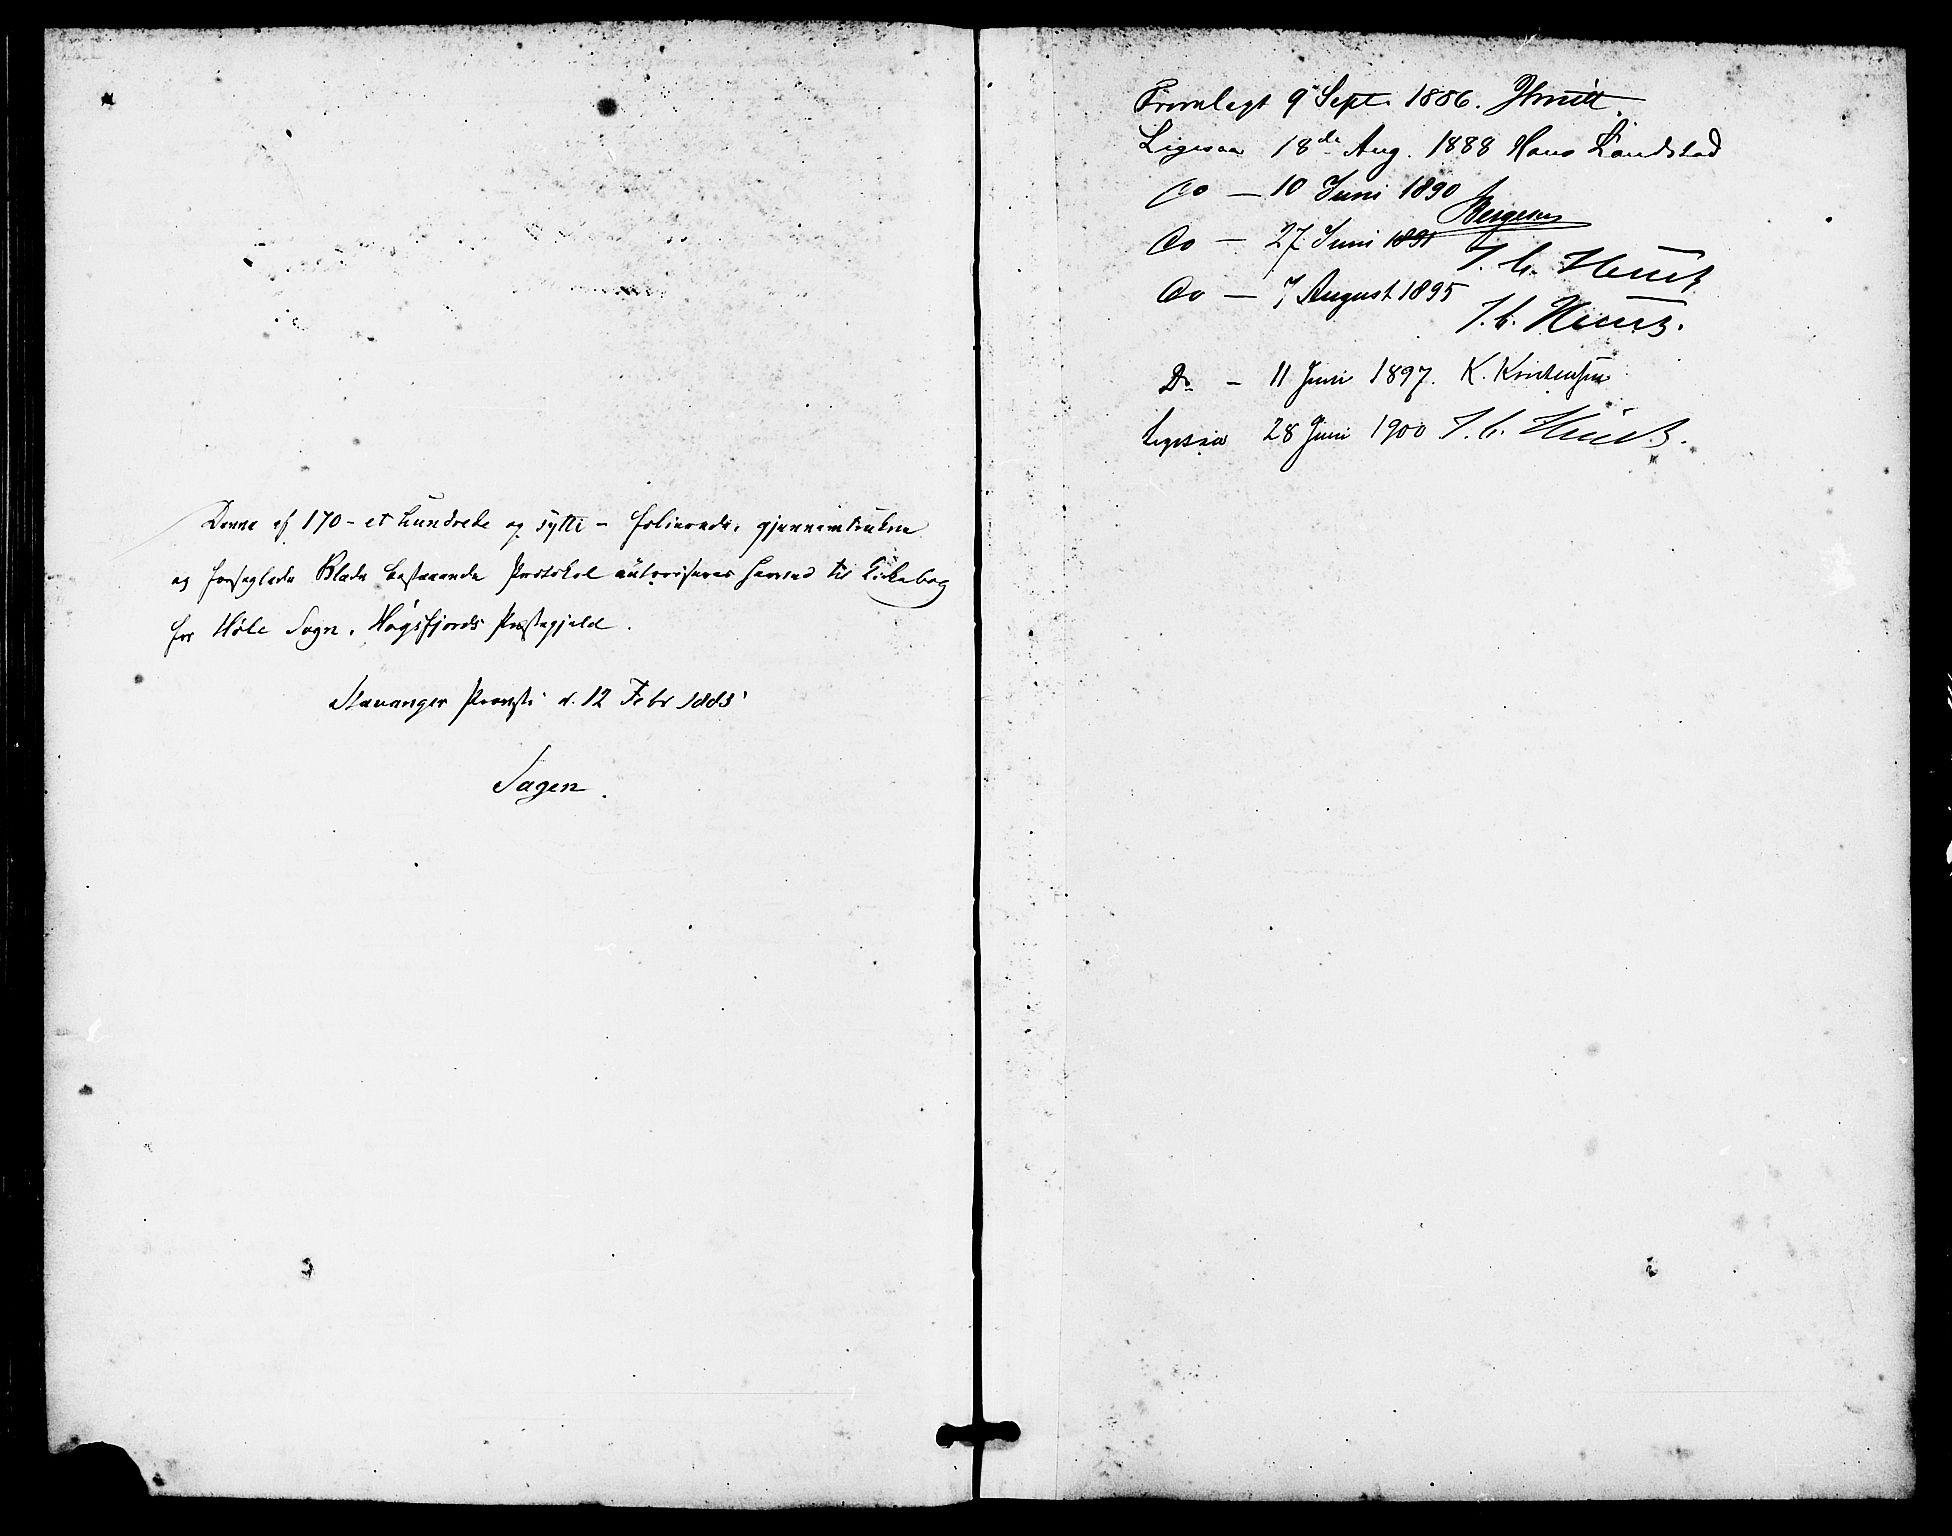 Denne af 170 - et Hundrede og sytti - folierede, gjennemtrukne
og forseglede Blade bestaaende Protokol autoriseres herved til Kirkebog
for Høle Sogn, Høgsfjords Præstegjeld.
Stavanger Provsti d. 12 Febr 1885
Sagen.
Fremlagt 9 Sept. 1886.
Ligesaa 18de Aug. 1888 Hans Landstad
Do — 10 Juni 1890
Do — 27 Juni 1891
J. C. Heuch
Do — 7 August 1895
J. C. Heuch.
Do - 11 Juni 1897. K.
Ligesaa 28 Juni 1900 J. C. Heuch.